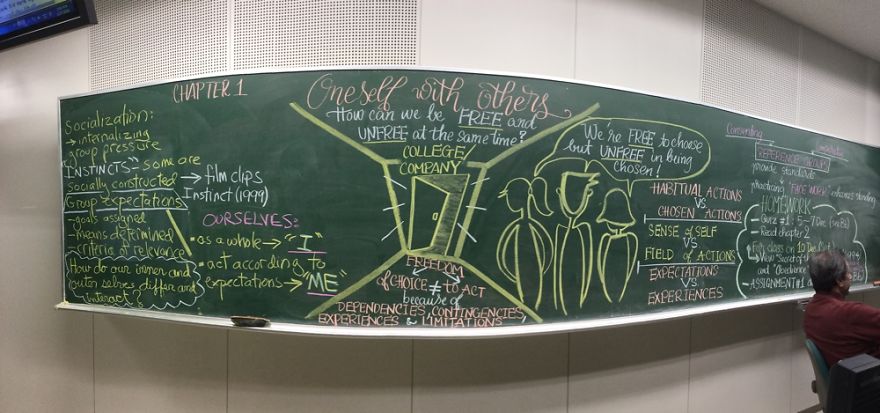 CHAPTER 1
Oneself with others
How can we be FREE and
UNFREE at the same time?
Socialization:
→ internalizing
group pressure
"INSTINCTS" - some are
socially constructed → film clips
Instinct (1999)
Group expectations
- goals assigned
- means determined
- criteria of relevance
How do our inner and
outer selves differ and
interact?
OURSELVES:
• as a whole → "I"
• act according to
expectations → "ME"
COLLEGE/
COMPANY
FREEDOM
of CHOICE ≠ to ACT
because of
DEPENDENCIES, CONTINGENCIES,
EXPERIENCES & LIMITATIONS
We're FREE to choose
but UNFREE in being
chosen!
HABITUAL ACTIONS
VS
CHOSEN ACTIONS
SENSE OF SELF
VS
FIELD OF ACTIONS
EXPECTATIONS
VS
EXPERIENCES
REFERENCE GROUP:
provide standards
"FACE WORK" enhances standing
HOMEWORK
- Quiz #1: 5-7 Dec
- Read chapter 2
class on 10 Dec
View
and "Obedience
- ASSIGNMENT #1